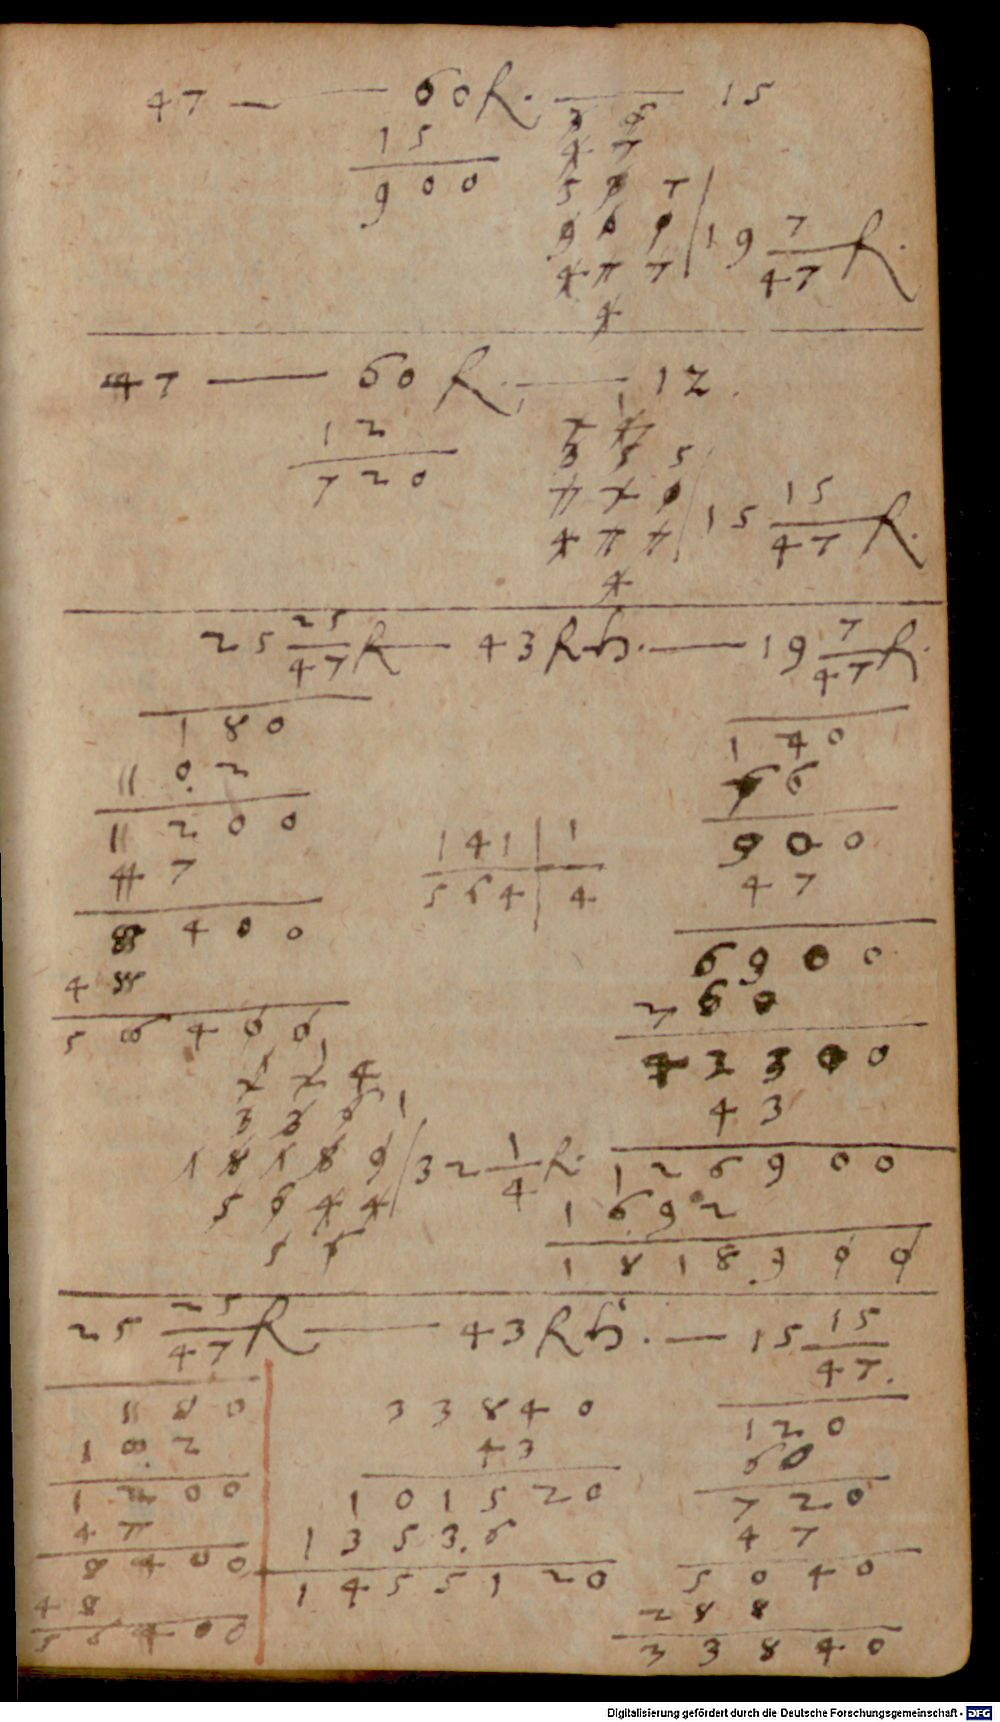 47 — 60 R. — 15
15
900
3 4
4 7
5 3 7
9 0 0 / 19 7/47 R.
4 7 7
4
47 — 60 R. — 12.
12
720
1
3 3 5
7 2 0 / 15 15/47 R.
4 7 7
4
25 25/47 R — 43 Rh. — 19 7/47 R.
180
1102
11200
47
8400
48
56400
141 | 1
564 | 4
140
66
900
47
6900
260
42300
43
126900
1692
1818900
4
3 3 0 1
1 8 1 8 9 / 32 1/4 R.
5 6 4 4
5 6
25 25/47 R — 43 Rh. — 15 15/47.
180
102
1200
47
8400
48
56400
33840
43
101520
13536
1455120
120
60
720
47
5040
288
33840
Digitalisierung gefördert durch die Deutsche Forschungsgemeinschaft - DFG